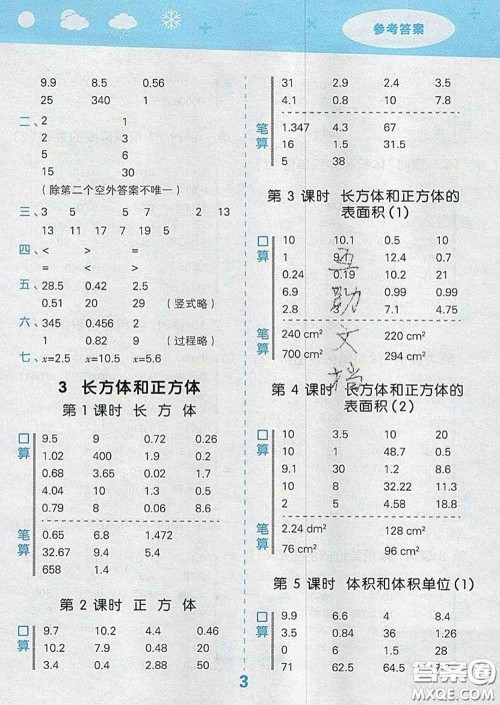 参考答案
9.9 8.5 0.56
25 340 1
二、2 1
2 3
5 6
15 30
(除第二个空外答案不唯一)
三、3 5 5 7 2 13
13 11 17 7 19 5
四、< > =
> < =
五、28.5 0.42 2.5
0.51 20 29 (竖式略)
六、345 0.456 2
1 0.82 9 (过程略)
七、x=2.5 x=10.5 x=5.6
3 长方体和正方体
第1课时 长方体
口算 9.5 9 0.72 0.26
1.02 400 1.9 0.2
0.68 3.65 0.02 0.1
4.04 10 1.3 0.5
0.79 8 0.06 8.6
笔算 0.65 6.8 1.472
32.67 9.4 5.4
658 1.4
第2课时 正方体
口算 9.7 10.2 4.4 0.46
10.2 7.9 0.48 0.2
3.4 0.4 2.88 50
31 2.9 2.4 3.5
4.1 0.8 10 7.8
笔算 1.347 4.3 67
16 1.5 31.5
5 38
第3课时 长方体和正方体的
表面积(1)
口算 10 10.1 0.5 10
1 12.4 0.7
0.24 0.19 10.2 10
6.9 0.99 4.99
2.8 4.75 3.75
笔算 240 cm² 220 cm²
700 cm² 294 cm²
文档
第4课时 长方体和正方体的
表面积(2)
口算 10 10 3.5 100
1 1 48.7 0.5
9.1 30 1.2 10
10 8 32.22 11.3
2 5 4.58 18.8
笔算 2.24 dm² 128 cm²
76 cm² 96 cm²
第5课时 体积和体积单位(1)
口算 9.9 6.6 4 8.4
3.5 0.84 36 1.26
0 6 1.5 28
71 62.5 64.5
3
答案圈
MXQE.COM